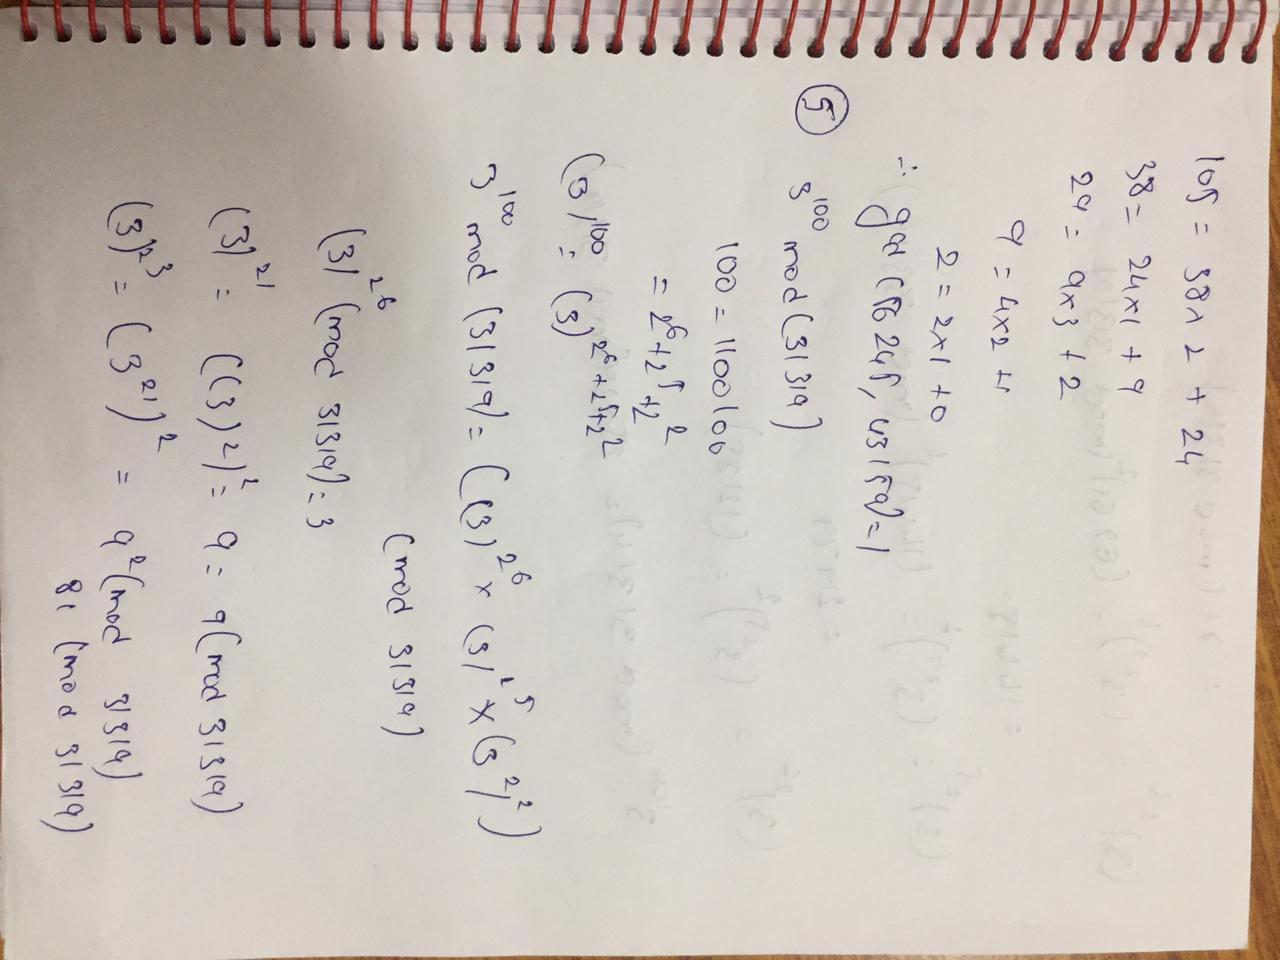 105 = 38x2 + 24
38 = 24x1 + 9
24 = 9x3 + 2
9 = 4x2 +1
2 = 2x1 +0
∴ gcd ( , 43159) = 1
⑤ 3^100 mod (31319)
100 = 1100100
= 2^6 + 2^5 + 2^2
(3)^100 = (3)^2^6 + 2^5 + 2^2
3^100 mod (31319) = ((3)^2^6 x (3)^2^5 x (3^2)^2)
(mod 31319)
(3)^2^6 (mod 31319) = 3
(3)^2^1 = ((3)^2)^2 = 9 = 9 (mod 31319)
(3)^2^3 = (3^2^1)^2 = 9^2 (mod 31319)
81 (mod 31319)